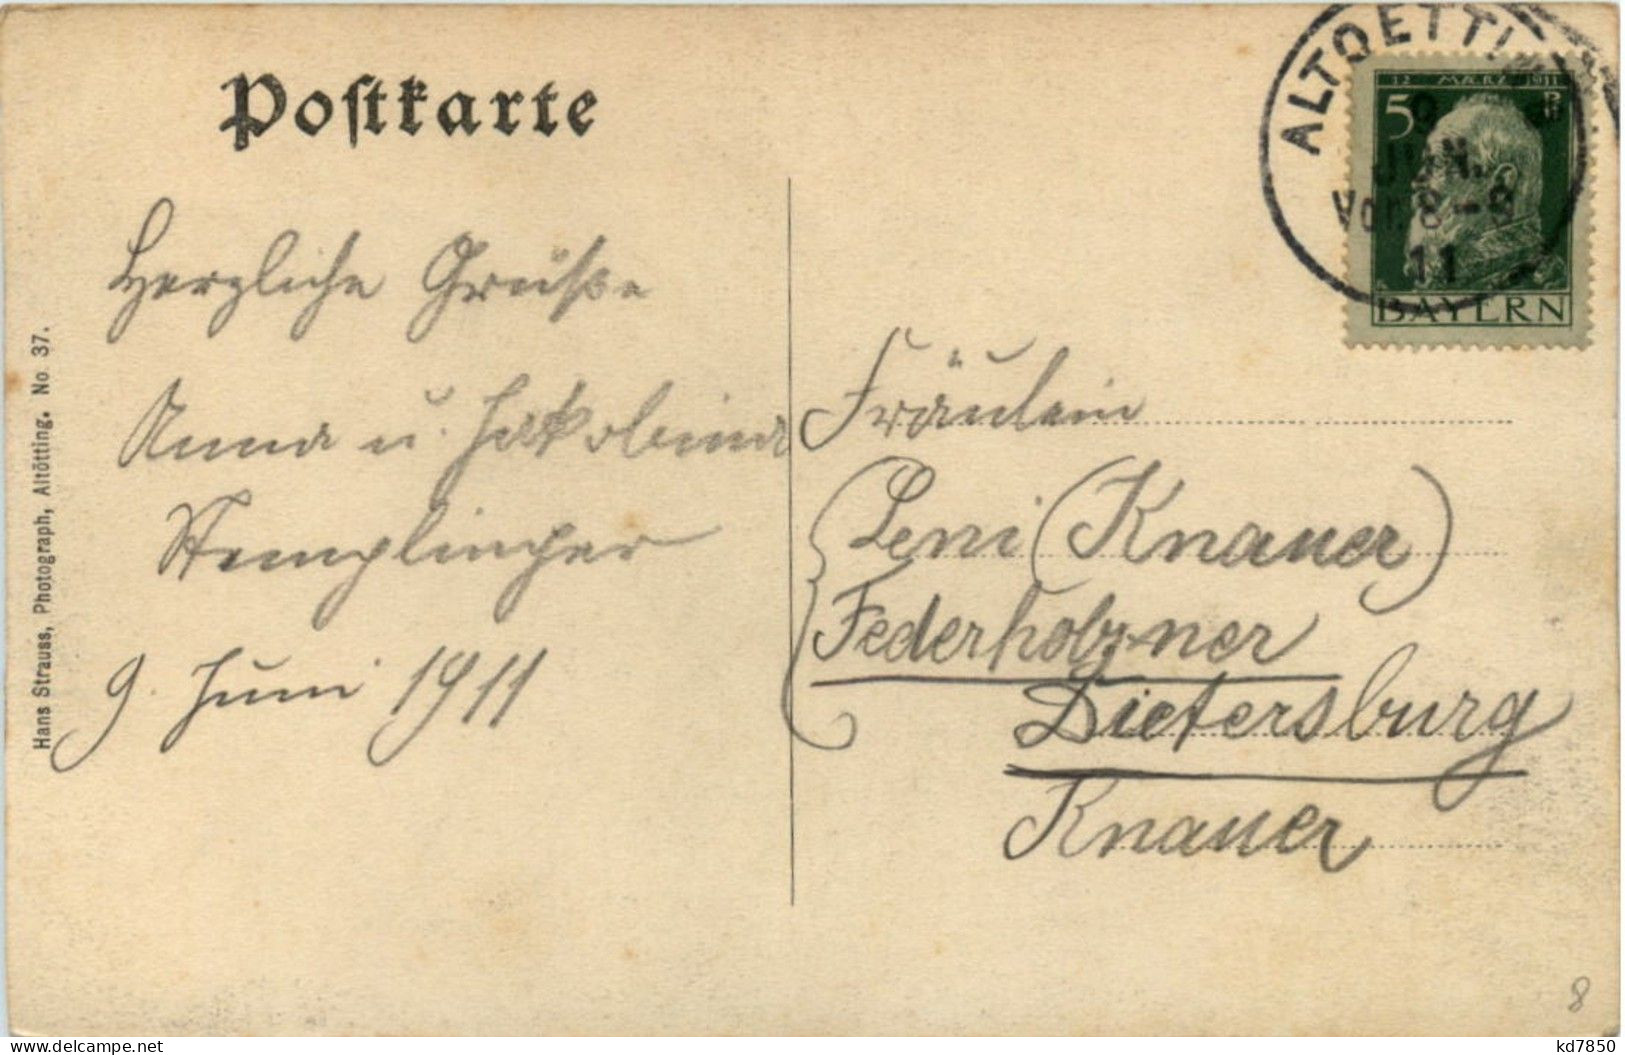 Postkarte
Herzliche Grüße
Anna u. Jakobina
Stemplinger
9. Juni 1911
Hans Strauss, Photograph, Altötting. No 37.
ALTOETTI
9
JUN.
Vor. 8-9
11
12 MÆRZ 1911
5
BAYERN
Fräulein
Leni (Knauer)
Federholzner
Dietersburg
Knauer
8
kd7850